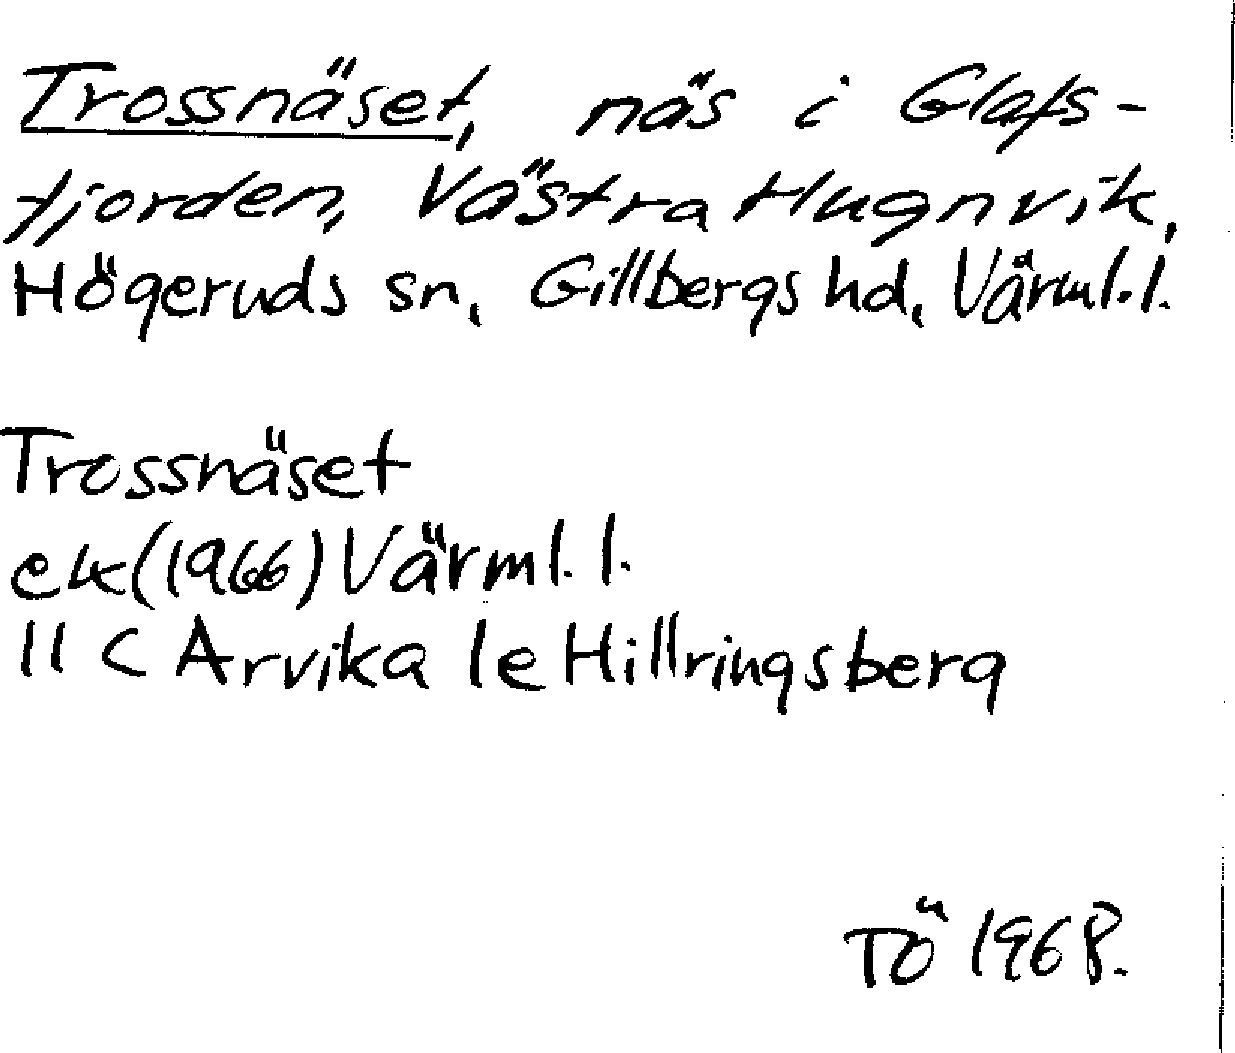 Trossnäset, näs i Glafs-
fjorden, Västra Hugnvik,
Högeruds sn, Gillbergs hd, Värml.l.
Trossnäset
ek (1966) Värml. l.
11 C Arvika 1e Hillringsberg
TÖ 1968.